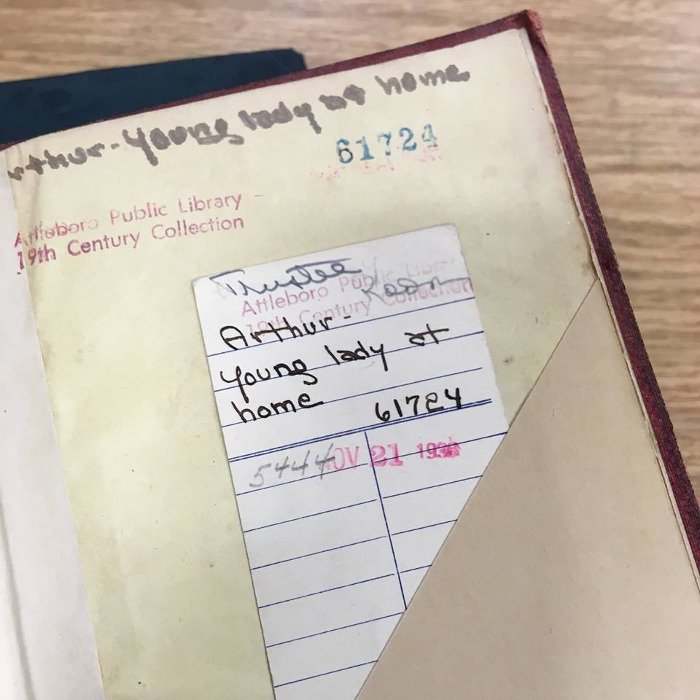 Arthur-Young lady at home
61724
Attleboro Public Library
19th Century Collection
Trustee
Attleboro Public Library
19th Century Collection
Arthur-
Young lady at
home 61724
5444 NOV 21